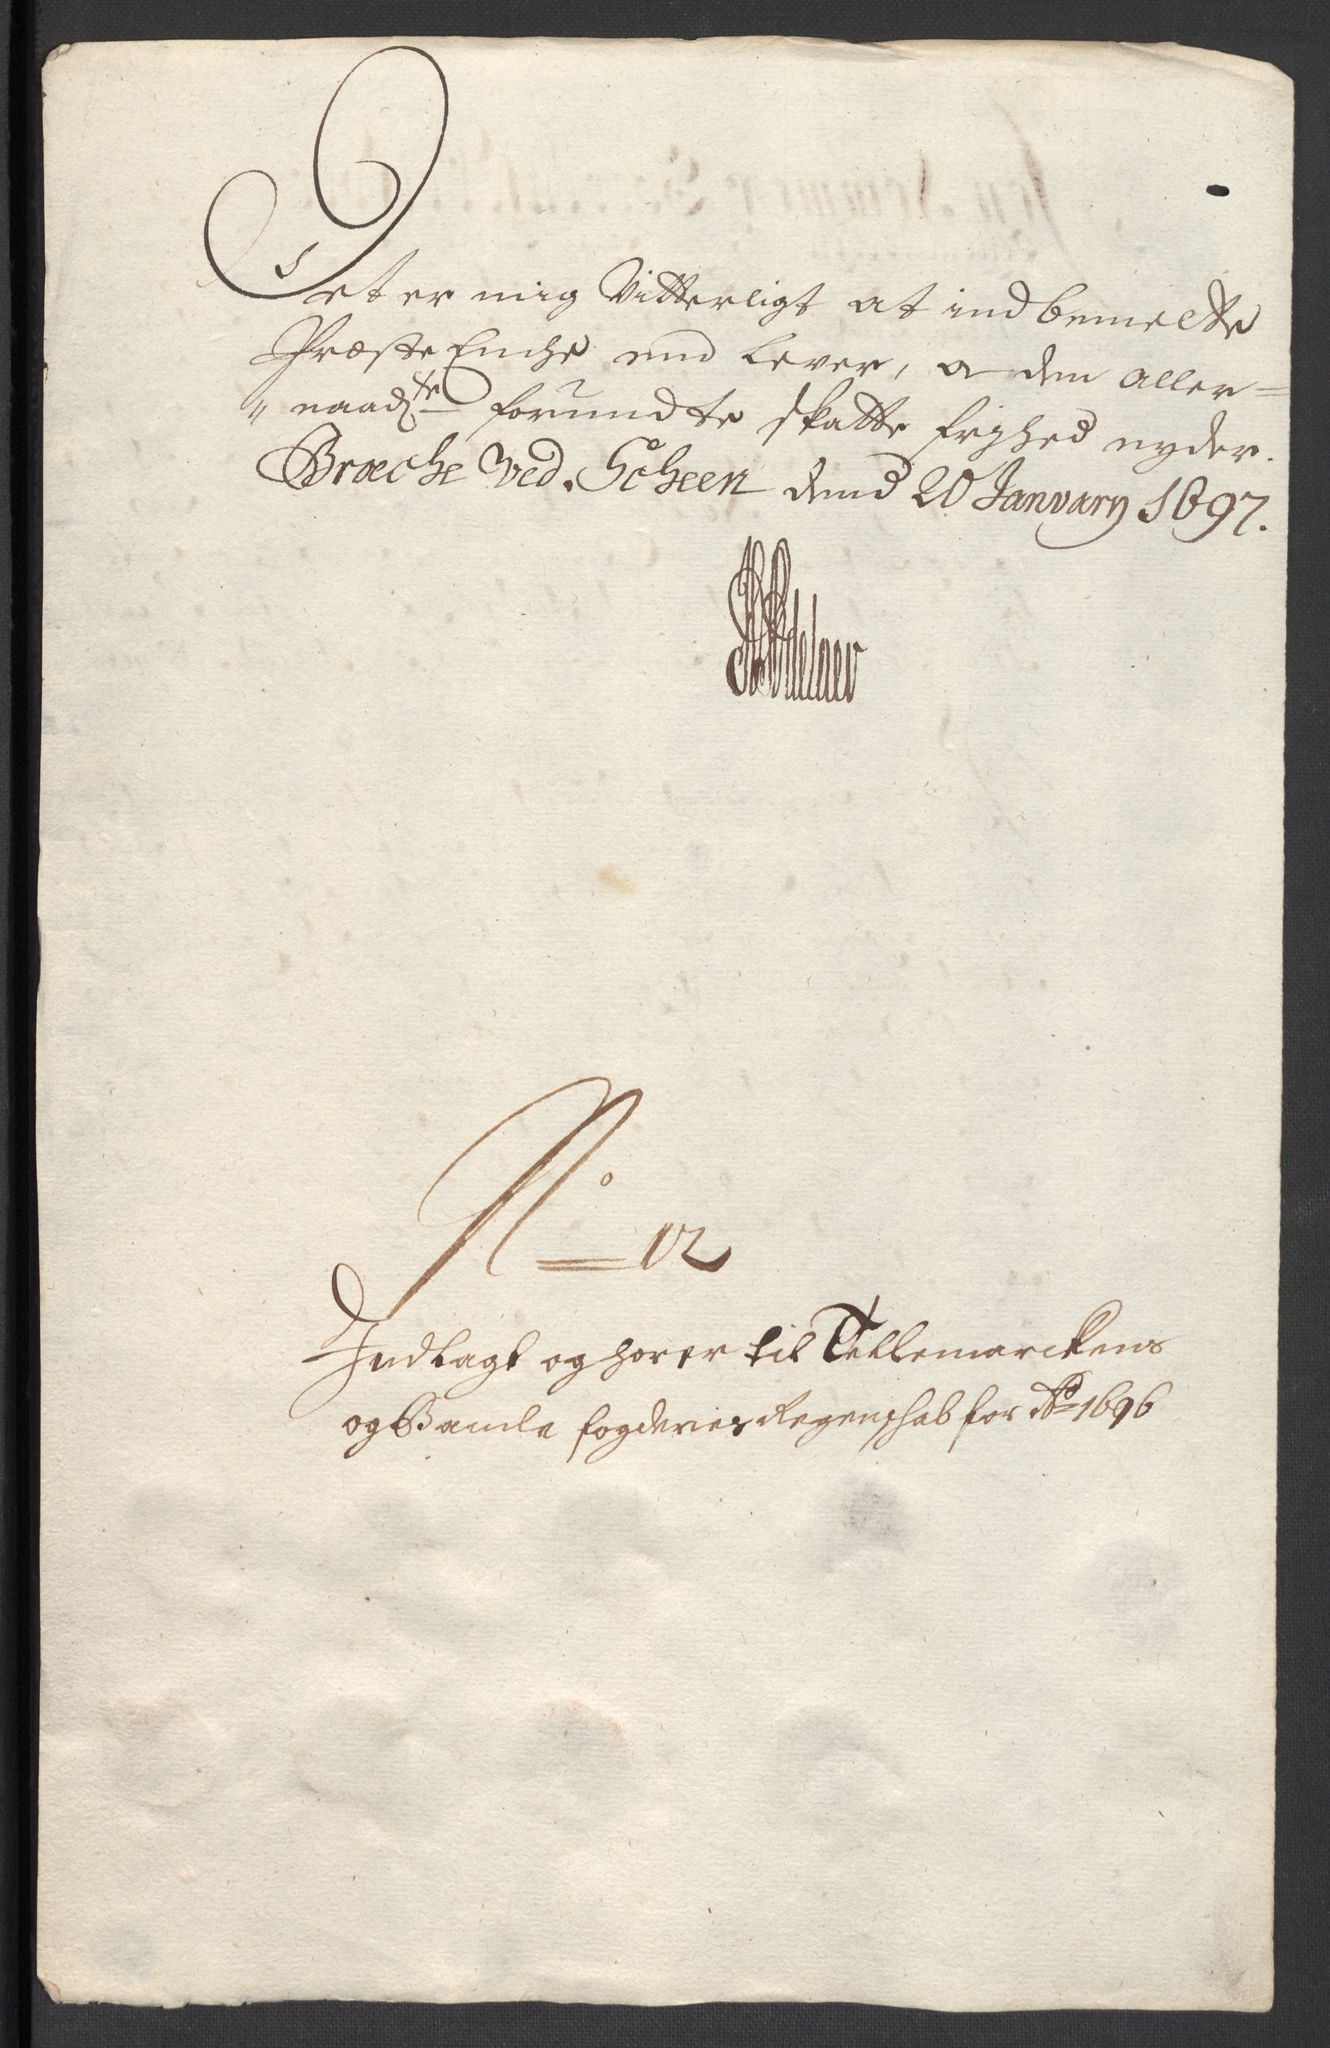 Det er mig Vitterligt at indbemelte
Præste Enche end lever, o den aller=
" naadste forundte skatte frihed nyder.
Bræche Ved. Scheen dend 20 January 1697.
Adelaer
No 12
Indlagt og hører til Tellemarckens
og Bamble fogderies Regenschab for Ao 1696